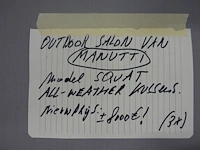 OUTDOOR SALON VAN
MANUTTI
model SQUAT
ALL-WEATHER KUSSENS.
Nieuwprijs:
± 8000 €!
(3x)